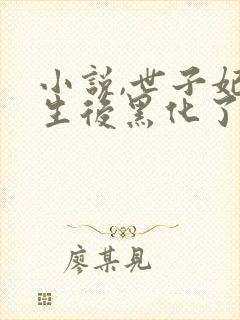 小説,世子妃
生後黑化了
廖某見